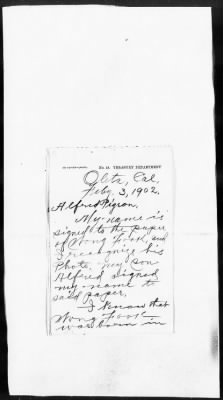 No. 18. TREASURY DEPARTMENT.
Oleta, Cal.
Feby. 3, 1902.
Alfred Pigeon,
My name is
signed to the paper
of Wong Fook, and
I recognize his
Photo. my son
Alfred signed
my name to
said paper.
I know that
Wong Fook
was born in